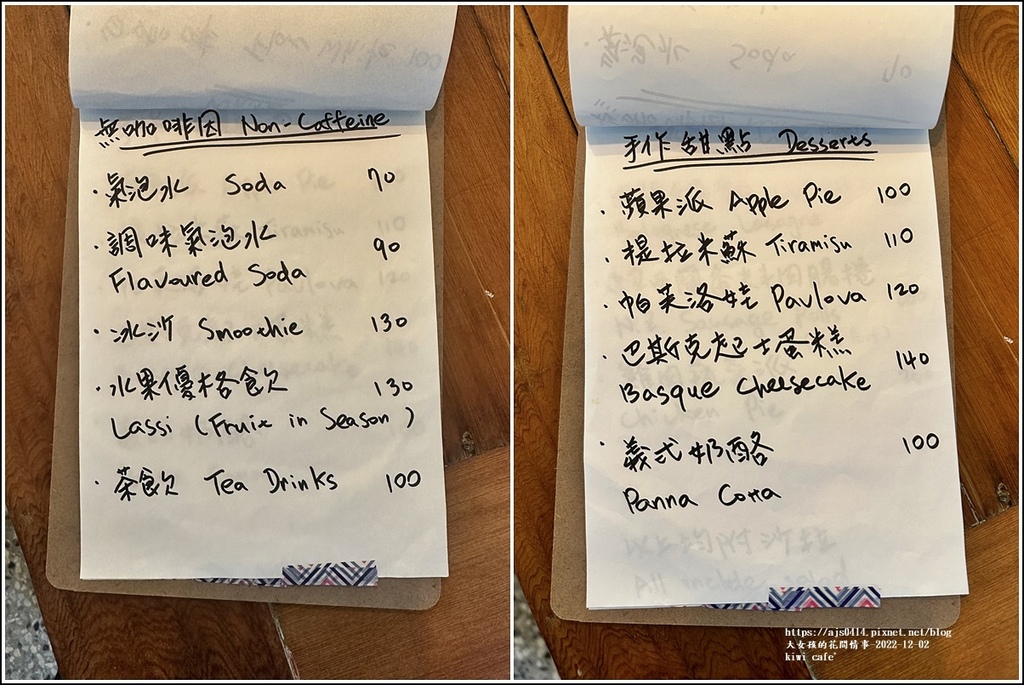 無咖啡因 Non-Caffeine
· 氣泡水 Soda 70
· 調味氣泡水 90
Flavoured Soda
· 冰沙 Smoothie 130
· 水果優格飲 130
Lassi (Fruit in Season)
· 茶飲 Tea Drinks 100
手作甜點 Desserts
· 蘋果派 Apple Pie 100
· 提拉米蘇 Tiramisu 110
· 帕芙洛娃 Pavlova 120
· 巴斯克起士蛋糕 140
Basque Cheesecake
· 義式奶酪 100
Panna Cotta
https://ajs0414.pixnet.net/blog
大女孩的花間情事-2022-12-02
kiwi cafe'